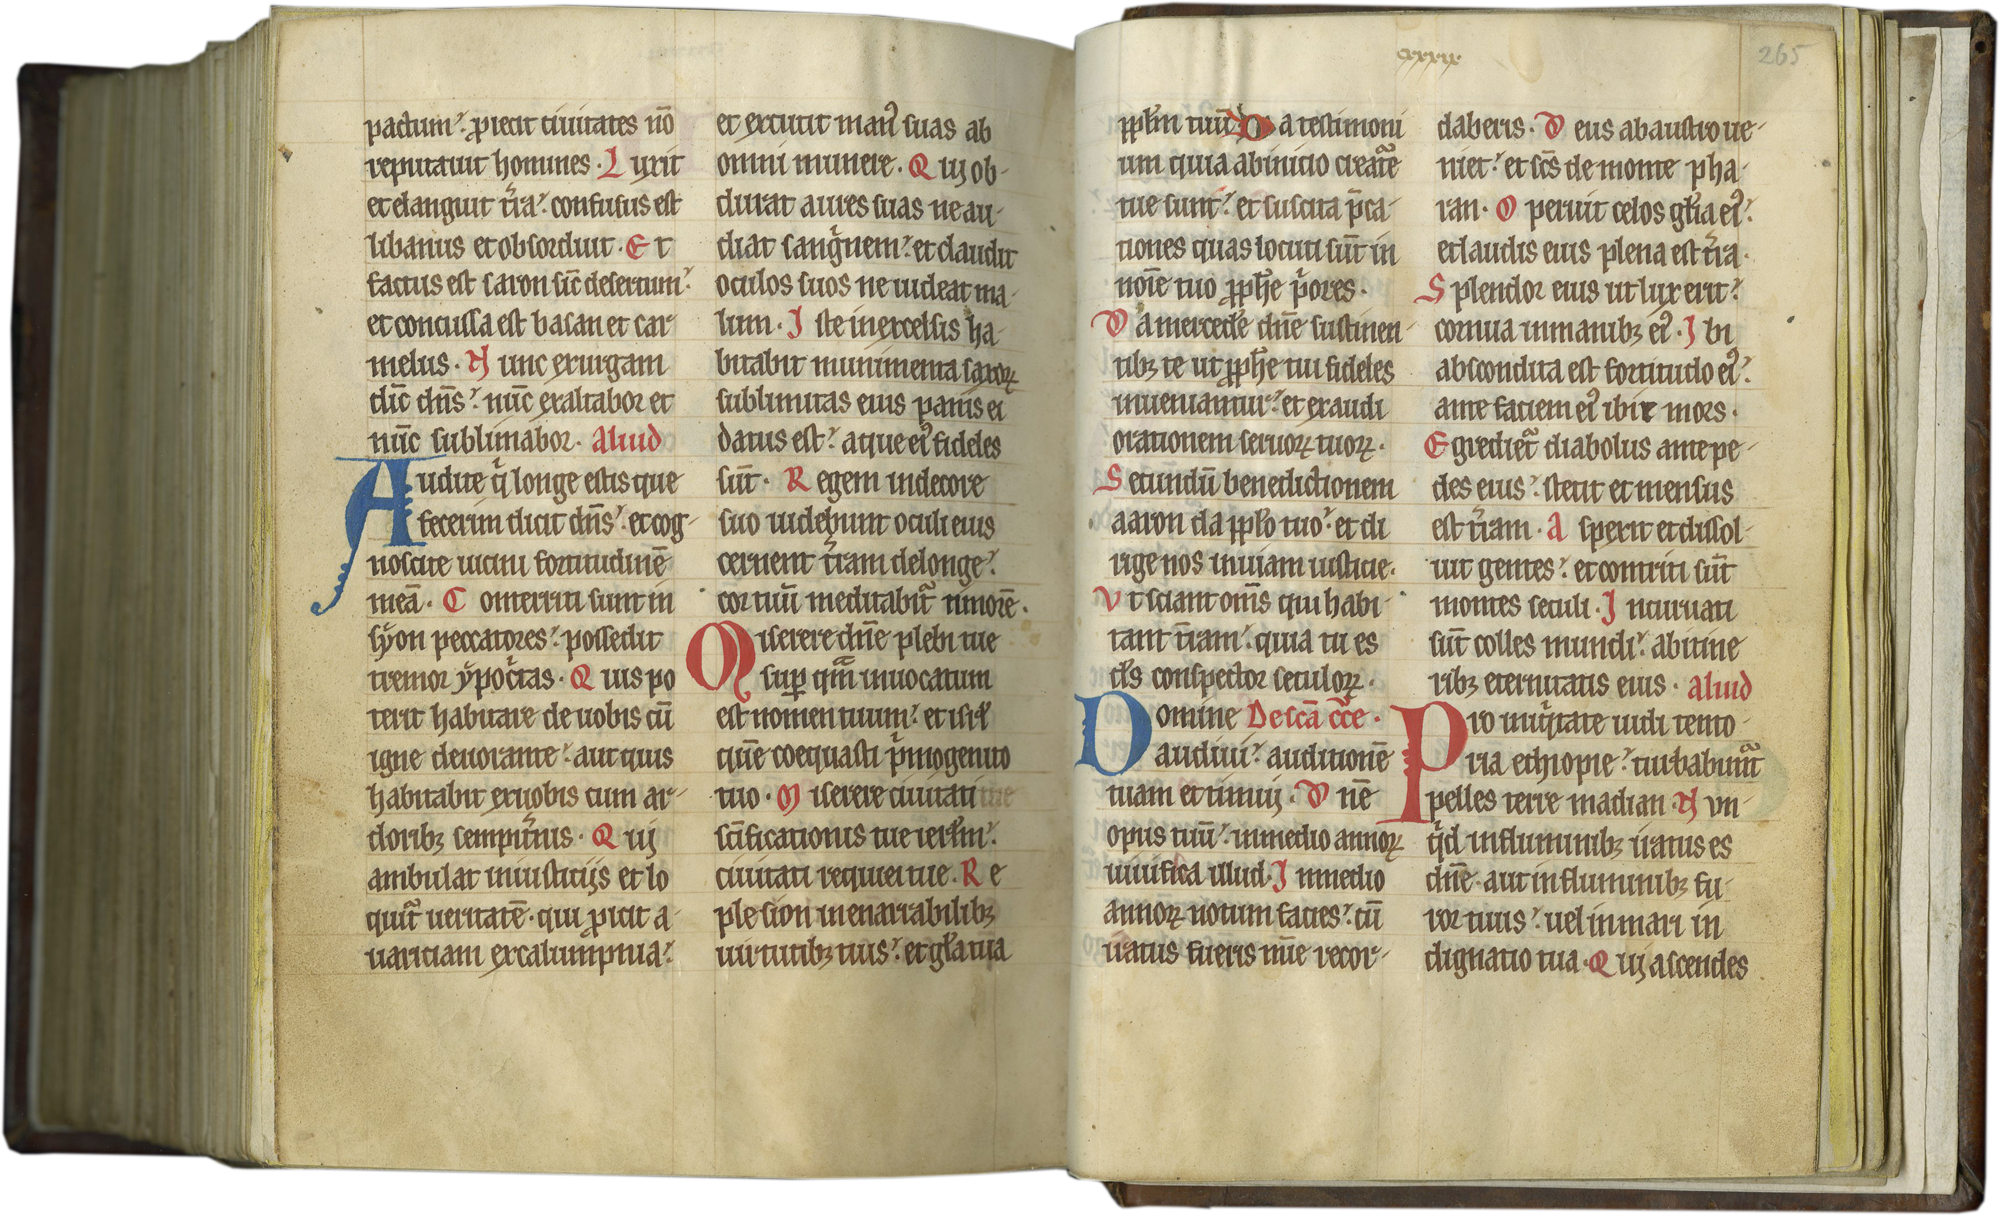 pactum: ꝓiecit ciuitates nō
reputauit homines. Luxit
et elanguit t̄ra: confusus est
libanus et obsorduit. Et
factus est saron sic̄ desertum:
et concussa est basan et car-
melus. Nunc exurgam
dic̄ dn̄s: nūc exaltabor et
nūc sublimabor. Aliud
Audite q̄ longe estis que
fecerim dicit dn̄s: et cog-
noscite uicini fortitudinē
meā. Conterriti sunt in
syon peccatores: possedit
tremor ypoc̄tas. Quis po
terit habitare de uobis cū
igne deuorante: aut quis
habitabit ex uobis cum ar-
doribꝫ sempit̄nis. Qui
ambulat in iusticijs et lo
quit̄ ueritatē. qui ꝓicit a-
uariciam ex calumpnia:
et excutit man᷒ suas ab
omni munere. Quj ob-
durat aures suas ne au-
diat sangͥnem: et claudit
oculos suos ne uideat ma-
lum. Iste in excelsis ha-
bitabit munimenta saxoꝝ
sublimitas eius panis ei
datus est: aque ei᷒ fideles
sūt. Regem in decore
suo uidebunt oculi eius
cernent t̄ram de longe:
cor tuū meditabit̄ timorē.
Miserere dn̄e plebi tue
suꝑ qͣm inuocatum
est nomen tuum: et isrl̄
quē coequasti pͥmogenito
tuo. Miserere ciuitati
sc̄ificationis tue ierl̄m:
ciuitati requiei tue. Re
ple sion inenarrabilibꝫ
uirtutibꝫ tuis: et gl̄a tua
cxxxix
265
ppl̄m tuū Da testimoni
um quia ab inicio creat̄e
tue sunt: et suscita p̄ca-
tiones quas locuti sūt in
noīe tuo ꝓph̄e pͥores.
Da mercedē dn̄e sustinen-
tibꝫ te ut ꝓph̄e tui fideles
inueniantur: et exaudi
orationem seruoꝝ tuoꝝ.
Secundū benedictionem
aaron da ppl̄o tuo: et di
rige nos in uiam iusticie.
Vt sciant om̄s qui habi-
tant t̄ram: quia tu es
dē̄s conspector seculoꝝ.
Domine De sc̄a cͬce.
audiui: auditionē
tuam et timuj. Dn̄e
opus tuū: in medio annoꝝ
uiuifica illud. In medio
annoꝝ notum facies: cū
iratus fueris mīe recor-
daberis. Deus ab austro ue-
niet: et sc̄s de monte pha-
ran. Operuit celos gl̄ia ei᷒:
et laudis eius plena est t̄ra.
Splendor eius ut lux erit:
cornua in manibꝫ ei᷒. Ibi
abscondita est fortitudo ei᷒:
ante faciem ei᷒ ibit mors.
Egrediet̄ diabolus ante pe-
des eius: stetit et mensus
est t̄ram. Aspexit et dissol-
uit gentes: et contriti sūt
montes seculi. Incuruati
sūt colles mundi: ab itine
ribꝫ eternitatis eius. Aliud
Pro iniqͥtate uidi tento-
ria ethiopie: turbabunt̄
pelles terre madian. Nun-
qͥd in fluminibꝫ iratus es
dn̄e. aut in fluminibꝫ fu-
ror tuus: uel in mari in
dignatio tua. Quj ascendes